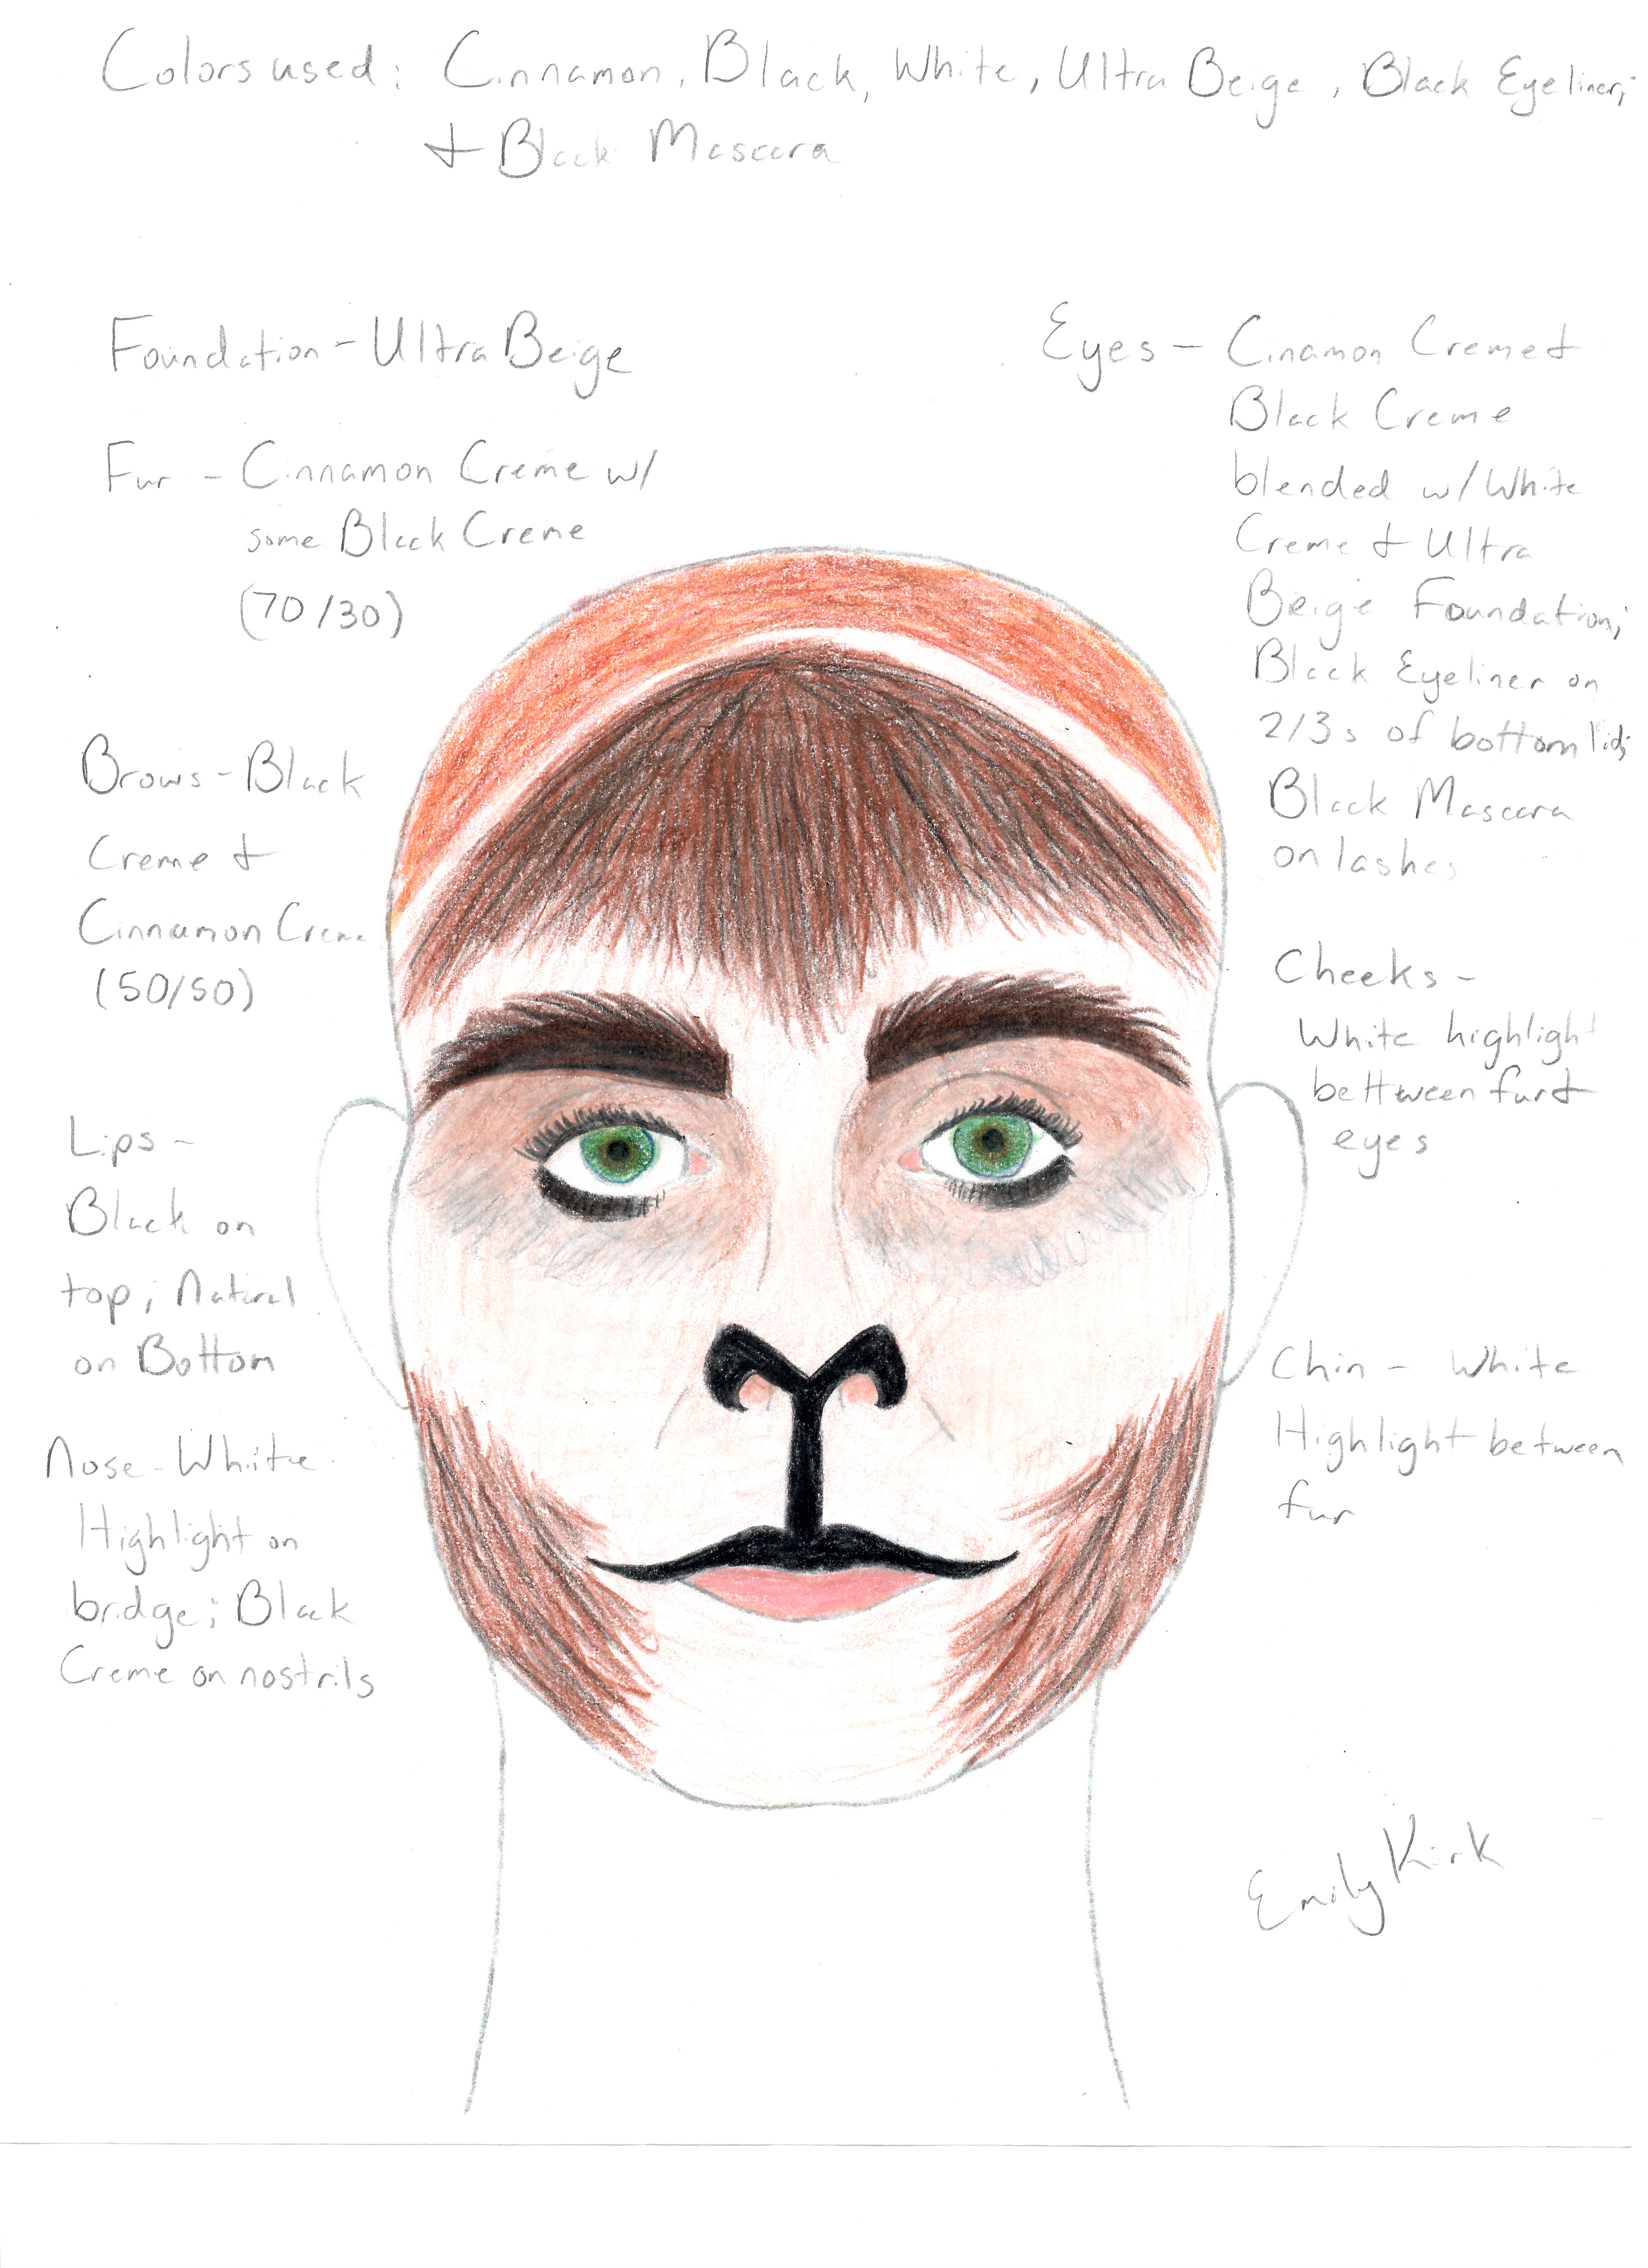 Colors used: Cinnamon, Black, White, Ultra Beige, Black Eyeliner,
+ Black Mascara
Foundation - Ultra Beige
Fur - Cinnamon Creme w/
some Black Creme
(70/30)
Brows - Black
Creme +
Cinnamon Creme
(50/50)
Lips -
Black on
top; Natural
on Bottom
Nose - White
Highlight on
bridge; Black
Creme on nostrils
Eyes - Cinamon Creme +
Black Creme
blended w/ White
Creme + Ultra
Beige Foundation;
Black Eyeliner on
2/3s of bottom lid;
Black Mascara
on lashes
Cheeks -
White highlight
bettween fur +
eyes
Chin - White
Highlight between
fur
Emily Kirk